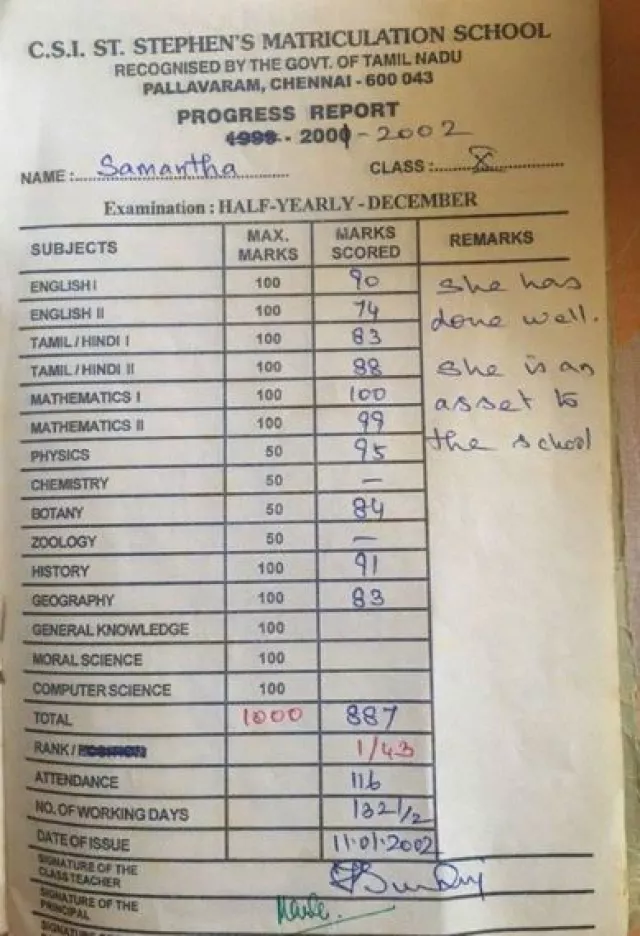 C.S.I. ST. STEPHEN'S MATRICULATION SCHOOL
RECOGNISED BY THE GOVT. OF TAMIL NADU
PALLAVARAM, CHENNAI - 600 043
PROGRESS REPORT
1999 - 2001 - 2002
NAME :.... Samantha .... CLASS :.... X ....
Examination : HALF-YEARLY - DECEMBER
SUBJECTS MAX. MARKS MARKS SCORED REMARKS
ENGLISH I 100 90 She has
ENGLISH II 100 74 done well.
TAMIL / HINDI I 100 83
TAMIL / HINDI II 100 88 She is an
MATHEMATICS I 100 100 asset to
MATHEMATICS II 100 99 the school
PHYSICS 50 95
CHEMISTRY 50 —
BOTANY 50 84
ZOOLOGY 50 —
HISTORY 100 91
GEOGRAPHY 100 83
GENERAL KNOWLEDGE 100
MORAL SCIENCE 100
COMPUTER SCIENCE 100
TOTAL 1000 887
RANK / POSITION 1/43
ATTENDANCE 116
NO. OF WORKING DAYS 132 1/2
DATE OF ISSUE 11.01.2002
SIGNATURE OF THE CLASS TEACHER
SIGNATURE OF THE PRINCIPAL